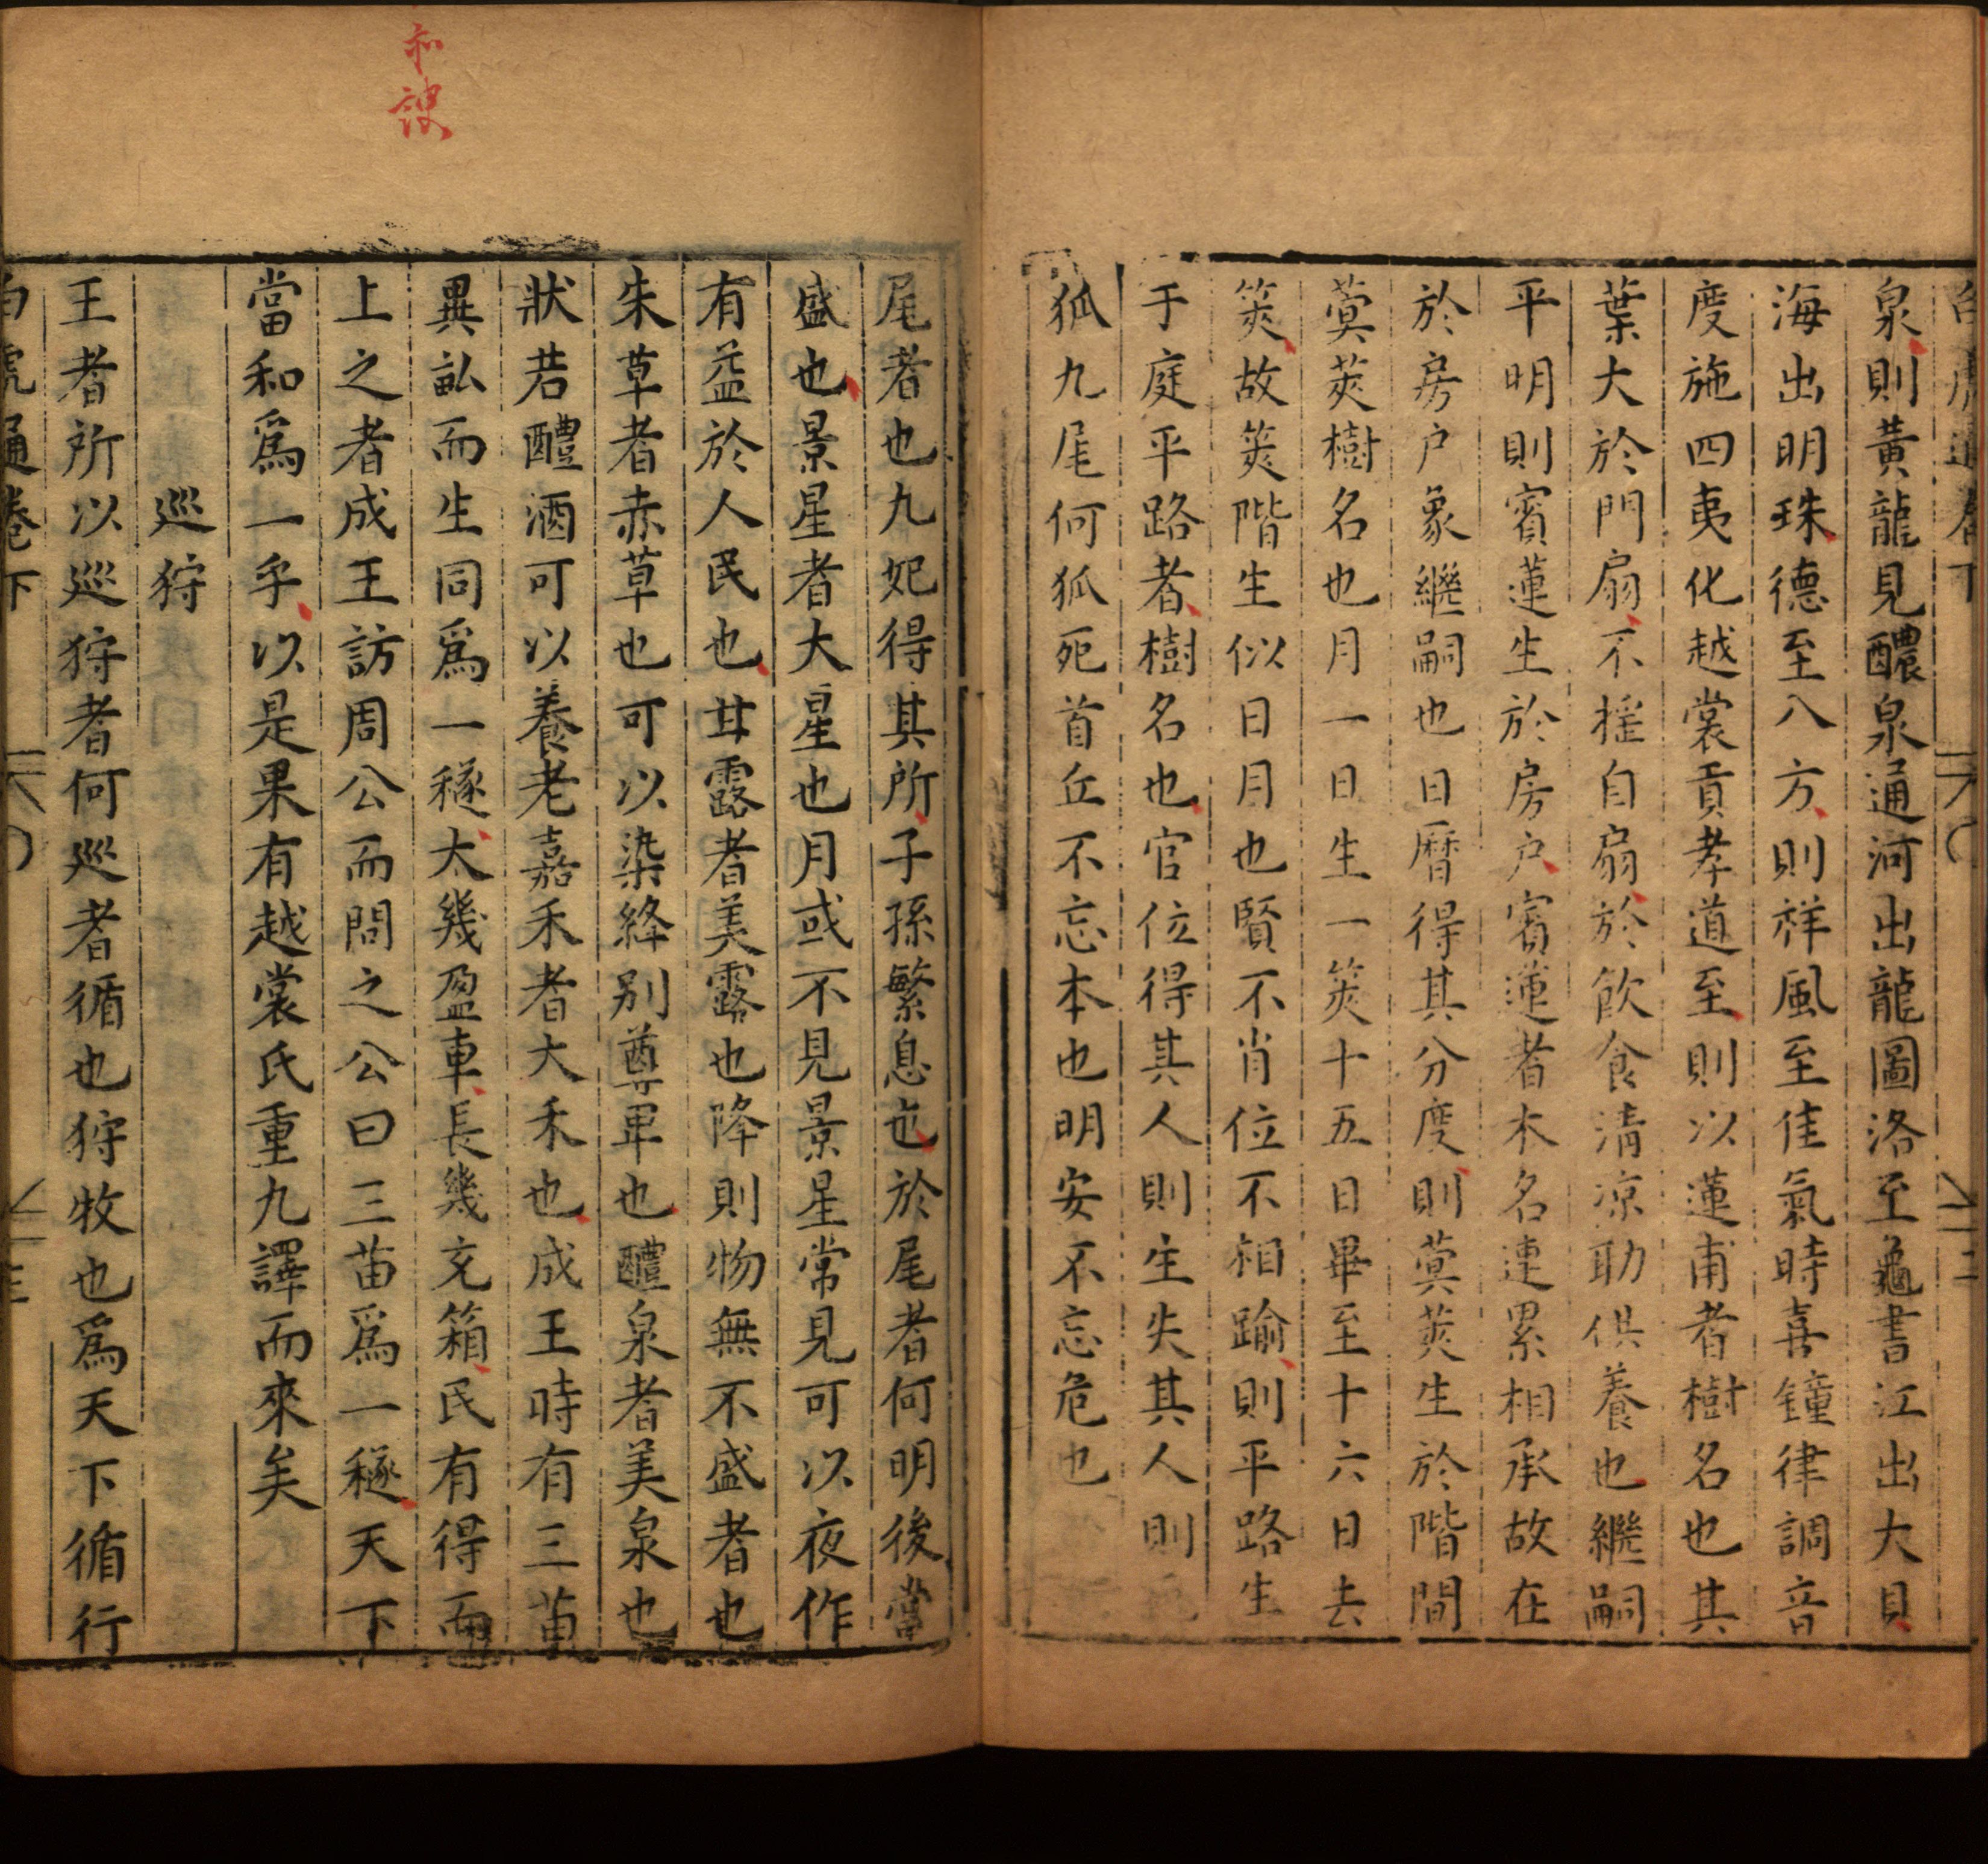 泉則黃龍見醲泉通河出龍圖洛至龜書江出大貝
海出明珠德至八方則祥風至佳氣時喜鐘律調音
度施四夷化越裳貢孝道至則以蓮甫者樹名也其
葉大於門扇不摇自扇於飲食清凉助俱養也繼嗣
平明則賓蓮生於房户賓蓮者木名連累相承故在
於房户象繼嗣也日曆得其分度則蓂莢生於階間
蓂莢樹名也月一日生一莢十五日畢至十六日去
筴故筴階生似日月也賢不肖位不相踰則平路生
于庭平路者樹名也官位得其人則生失其人則
狐九尾何狐死首丘不忘本也明安不忘危也
尾者也九妃得其所子孫繁息也於尾者何明後當
盛也景星者大星也月或不見景星常見可以夜作
有益於人民也甘露者美露也降則物無不盛者也
朱草者赤草也可以染絳别尊卑也醴泉者美泉也
狀若醴酒可以養老嘉禾者大禾也成王時有三苗
異畝而生同爲一穟大幾盈車長幾充箱民有得而
上之者成王訪周公而問之公曰三苗爲一穟天下
當和爲一乎以是果有越裳氏重九譯而來矣
巡狩
王者所以巡狩者何巡者循也狩牧也爲天下循行
白虎通卷下